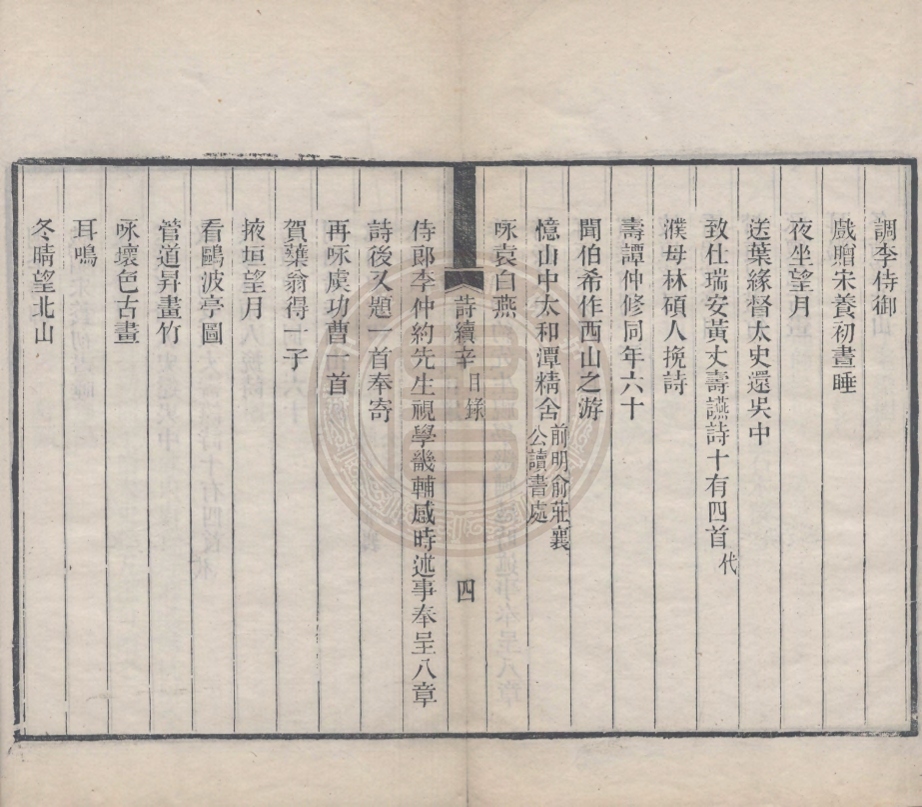 調李侍御
戲贈宋養初晝睡
夜坐望月
送葉緣督太史還吳中
致仕瑞安黃丈壽讌詩十有四首代
濮母林碩人挽詩
壽譚仲修同年六十
聞伯希作西山之游
憶山中太和潭精舍前明俞莊襄公讀書處
咏袁白燕
詩續辛目錄
四
侍郎李仲約先生視學畿輔感時述事奉呈八章
詩後又題一首奉寄
再咏虞功曹一首
賀蘖翁得一子
掖垣望月
看鷗波亭圖
管道昇畫竹
咏壞色古畫
耳鳴
冬晴望北山